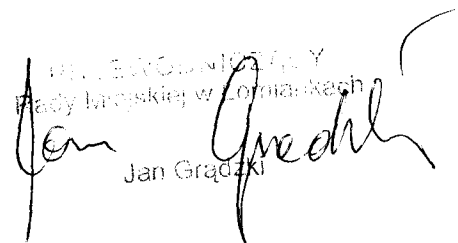 PRZEWODNICZĄCY
Rady Miejskiej w Łomiankach
Jan Grądzki
Jan Grądzki